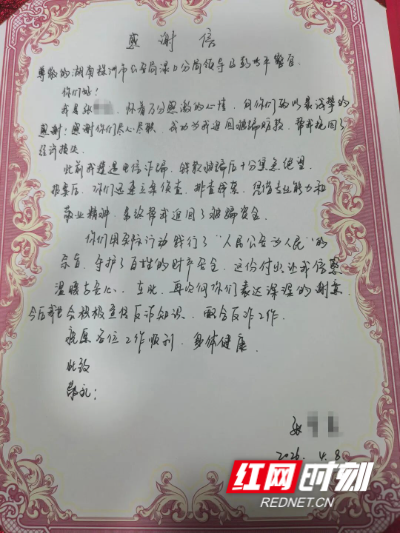 感谢信
尊敬的湖南株洲市公安局渌口分局领导及彭警官
你们好!
我名张 怀着万分感激的心情,向你们致以最诚挚的
感谢!感谢你们尽心尽职,成功为我追回被骗财款,帮我挽回了
经济损失。
此前我遭遇电信诈骗,钱款被骗后十分焦急绝望,
报案后,你们迅速立案侦查,排查线索,凭借专业能力和
敬业精神,最终帮我追回了被骗资金。
你们用实际行动践行了“人民公安为人民”的
宗旨,守护了百姓的财产安全,这份付出让我倍感
温暖与安心。在此,再次向你们表达深深的谢意,
今后我也会积极宣传反诈知识,配合反诈工作。
祝愿各位工作顺利,身体健康。
此致
敬礼!
张
2026. 4. 8
红网时刻
REDNET.CN